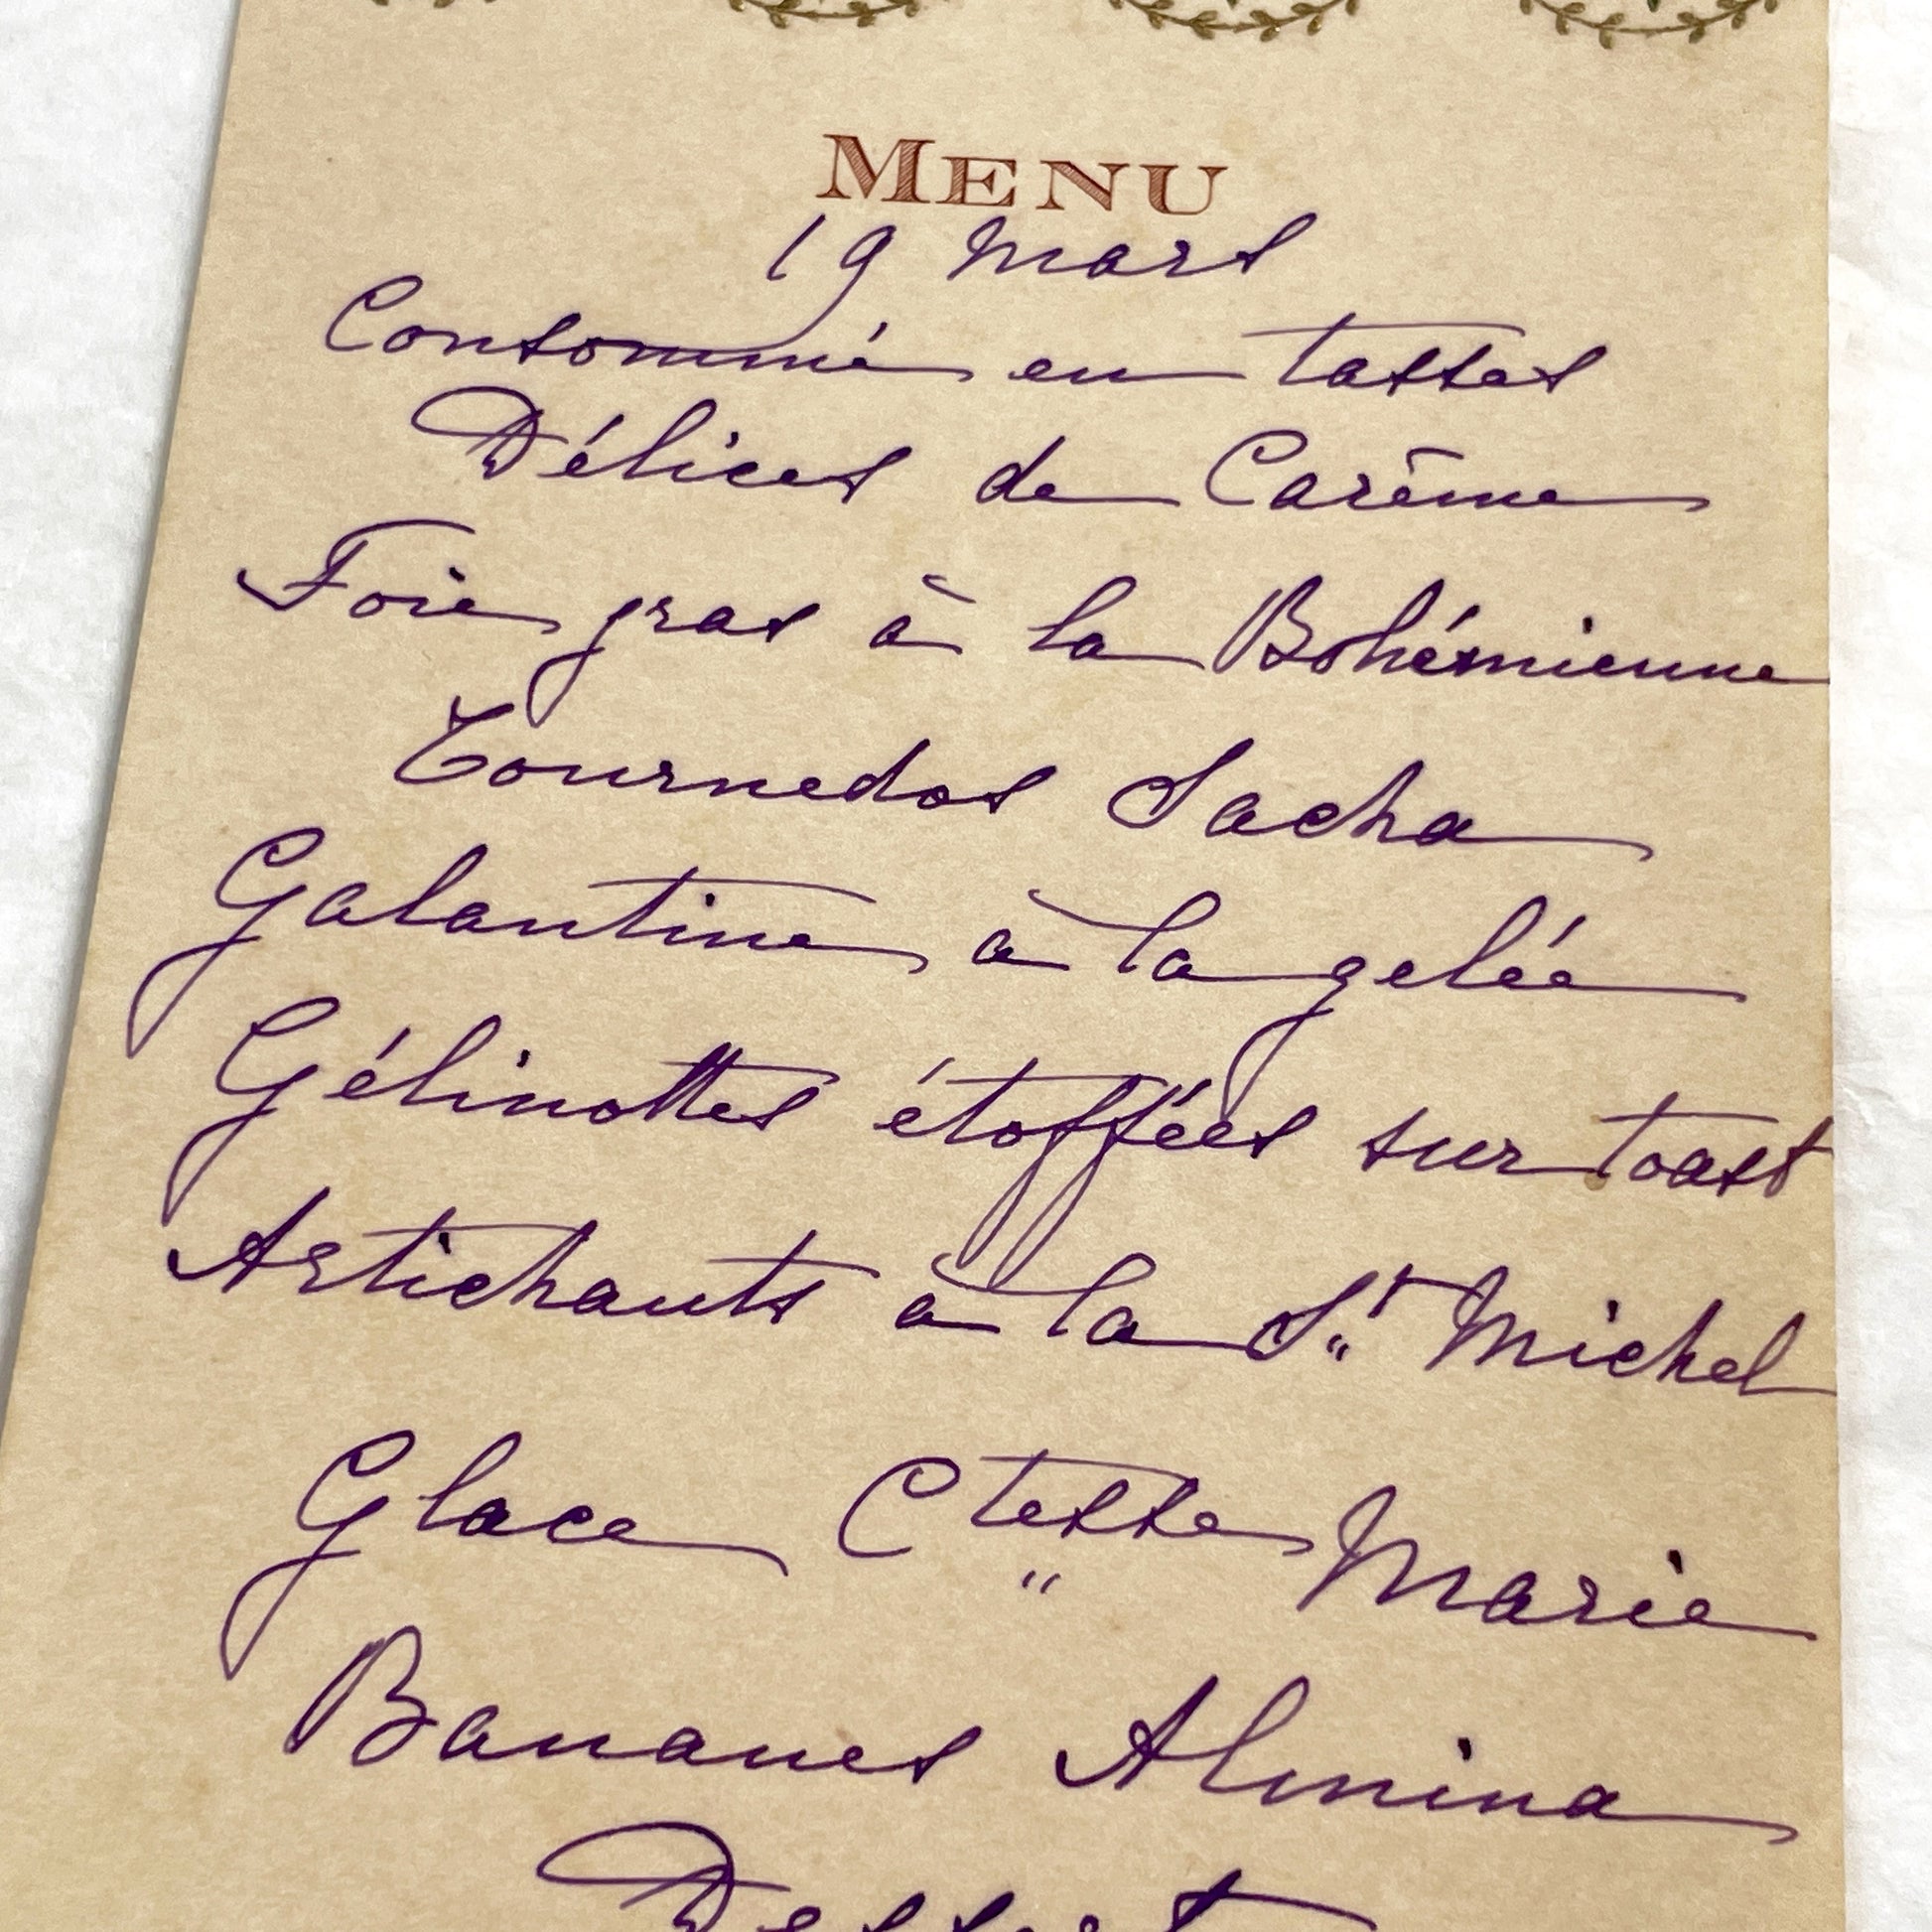 MENU
19 Mars
Consommé en tasses
Délices de Carême
Foie gras à la Bohémienne
Tournedos Sacha
Galantine à la gelée
Gélinottes étoffées sur toast
Artichauts à la St Michel
Glace Ctesse Marie
Bananes Almina
Dessert